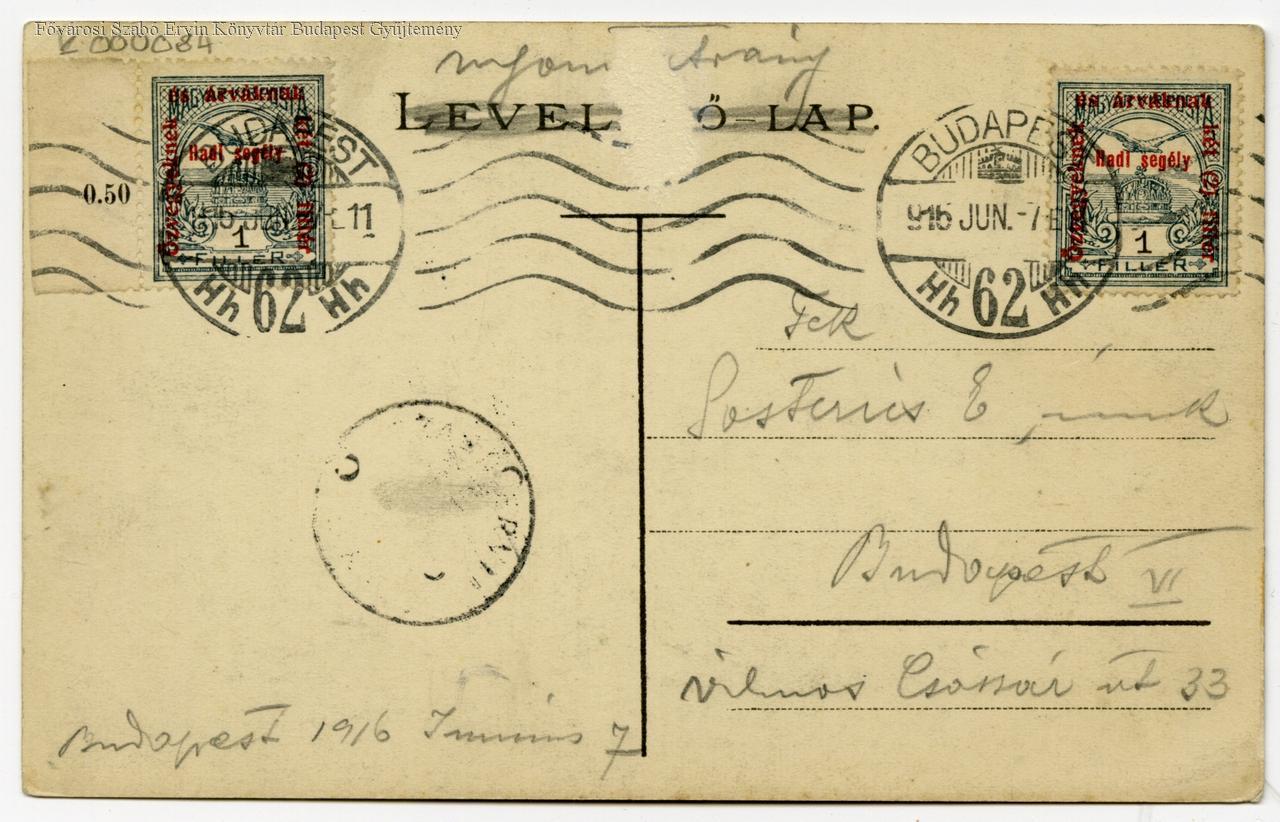 Fővárosi Szabó Ervin Könyvtár Budapest Gyűjtemény
000084
Arány
LEVEL Ő-LAP.
és Árváknak
Özvegyeknek
Hadi segély
két (2) fillér
1
FILLER
0.50
BUDAPEST
11
Hh 62 Hh
BUDAPEST
916 JUN. -7
Hh 62 Hh
és Árváknak
Özvegyeknek
Hadi segély
két (2) fillér
1
FILLER
Budapest VI
Vilmos Császár út 33
Budapest 1916 Junius 7